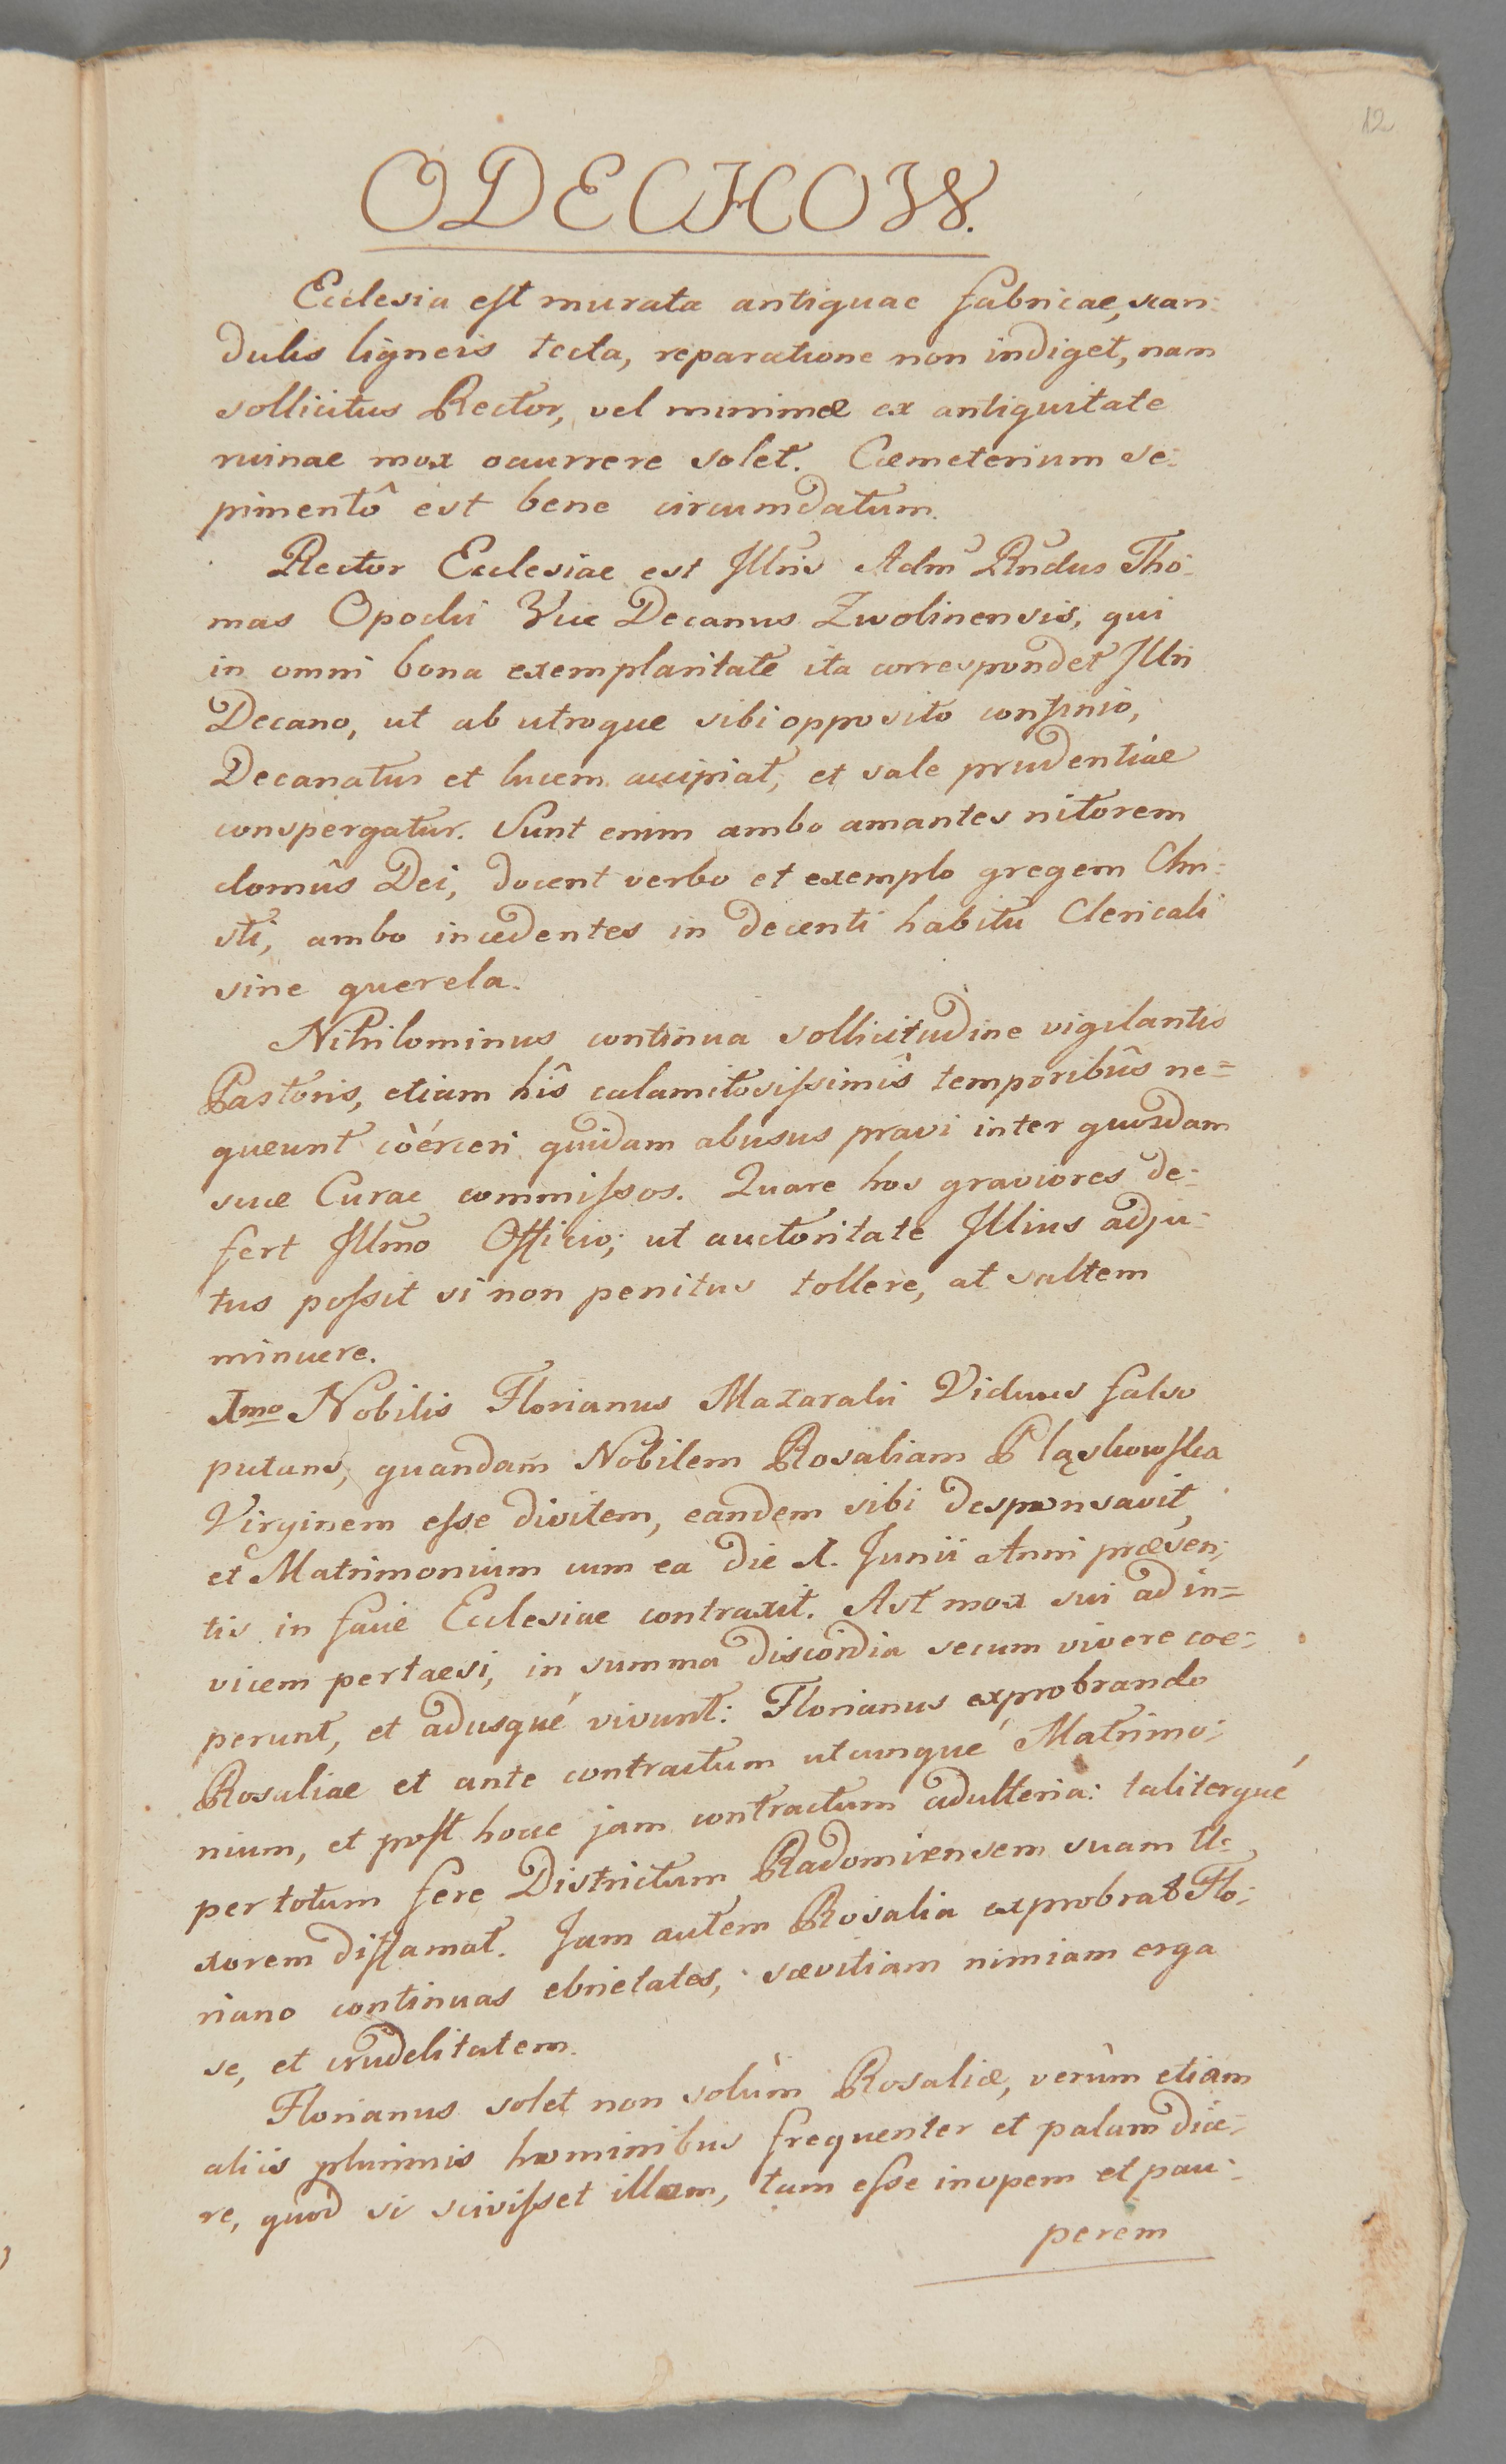 12
ODECHOW.
Ecclesia est murata antiquae fabricae, scan:
dulis ligneis tecta, reparatione non indiget, nam
sollicitus Rector, vel minimæ ex antiquitate
ruinae mox occurrere solet. Cæmeterium se:
pimentô est bene circumdatum.
Rector Ecclesiae est Illris Adm Rndus Tho:
mas Opocki Vice Decanus Zwolinensis, qui
in omni bona exemplaritate ita correspondet Illri
Decano, ut ab utroque sibi opposito confinio,
Decanatus et lucem accipiat, et sale prudentiæ
conspergatur. Sunt enim ambo amantes nitorem
domûs Dei, docent verbo et exemplo gregem Chri:
sti, ambo incedentes in decenti habitu Clericali
sine querela.
Nihilominus continua sollicitudine vigilantis
Pastoris, etiam hîs calamitosissimîs temporibûs ne=
queunt coérceri quidam abusus pravi inter quosdam
suæ Curae commissos. Quare hos graviores de:
fert Illmo Officio; ut auctoritate Illius adju:
tus possit si non penitus tollere, at saltem
minuere.
1mo Nobilis Florianus Mazaraki Viduus falso
putans, quandam Nobilem Rosaliam Pląskowska
Virginem esse divitem, eandem sibi desponsavit,
et Matrimonium cum ea die 1. Junii Anni præsen:
tis in facie Ecclesiae contraxit. Ast mox sui ad in=
vicem pertaesi, in summa discordia secum vivere coe:
perunt, et adusqué vivunt: Florianus exprobrando
Rosaliae et ante contractum utcunqué Matrimo:
nium, et post hocce jam contractum adulteria: taliterqué
per totum fere Districtum Radomiensem suam U:
xorem diffamat. Jam autem Rosalia exprobrat Flo:
riano continuas ebrietates, sævitiam nimiam erga
se, et crudelitatem.
Florianus solet non solùm Rosaliæ, verùm etiam
aliis plurimis hominibus frequenter et palam dice:
re, quod si scivisset illam, tam esse inopem et pau:
perem